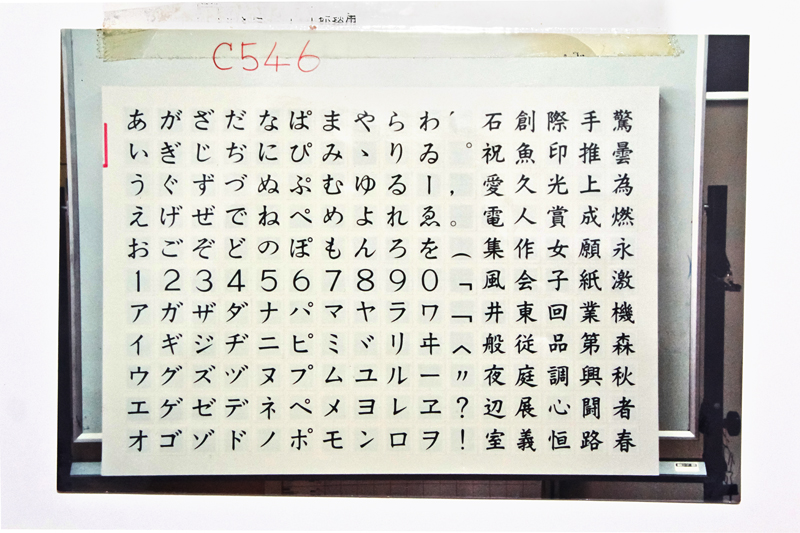 C546
あがざだなぱまやらわ゛石創際手驚
いぎじぢにぴみゝりゐ゜祝魚印推曇
うぐずづぬぷむゆるー，愛久光上為
えげぜでねぺめよれゑ。電人賞成燃
おごぞどのぽもんろを（集作女願永
1234567890「風会子紙激
アガザダナパマヤラワ「井東回業機
イギジヂニピミヾリヰ〈般従品第森
ウグズヅヌプムユルー〃夜庭調興秋
エゲゼデネペメヨレヱ？辺展心闘者
オゴゾドノポモンロヲ！室義恒路春